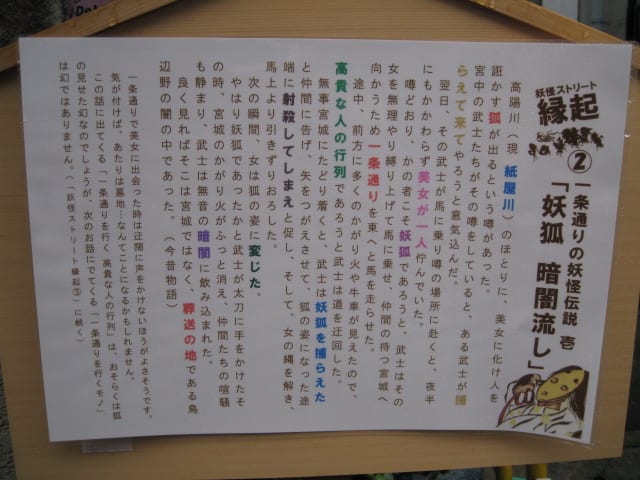 妖怪ストリート
縁起
② 一条通りの妖怪伝説 壱
「妖狐 暗闇流し」
高陽川(現 紙屋川)のほとりに、美女に化け人を
誑かす狐が出るという噂があった。
宮中の武士たちがその噂をしていると、ある武士が捕
らえて来てやろうと意気込んだ。
翌日、その武士が馬に乗り噂の場所に赴くと、夜半
にもかかわらず美女が一人佇んでいた。
噂どおり、かの者こそ妖狐であろうと、武士はその
女を無理やり縛り上げて馬に乗せ、仲間の待つ宮城へ
向かうため一条通りを東へと馬を走らせた。
途中、前方に多くのかがり火や牛車が見えたので、
高貴な人の行列であろうと武士は道を迂回した。
無事宮城にたどり着くと、武士は妖狐を捕らえた
と仲間に告げ、矢をつがえさせて、狐の姿になった途
端に射殺してしまえと促し、そして、女の縄を解き、
馬上より引きずりおろした。
次の瞬間、女は狐の姿に変じた。
やはり妖狐であったかと武士が太刀に手をかけたそ
の時、宮城のかがり火がふっと消え、仲間たちの喧騒
も静まり、武士は無音の暗闇に飲み込まれた。
良く見ればそこは宮城ではなく、葬送の地である鳥
辺野の闇の中であった。(今昔物語)
一条通りで美女に出会った時は迂闊に声をかけないほうがよさそうです。
気が付けば、あたりは墓地…なんてことになるかもしれません。
この話に出てくる「一条通りを行く高貴な人の行列」は、おそらくは狐
の見せた幻なのでしょうが、次のお話にでてくる「一条通りを行くモノ」
は幻ではありません。(「妖怪ストリート縁起③」に続く)